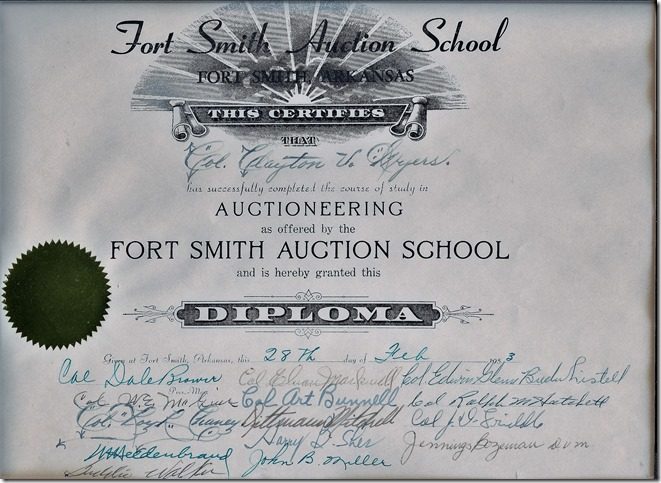 Fort Smith Auction School
FORT SMITH, ARKANSAS
THIS CERTIFIES
THAT
Col. Clayton V. Myers.
has successfully completed the course of study in
AUCTIONEERING
as offered by the
FORT SMITH AUCTION SCHOOL
and is hereby granted this
DIPLOMA
Given at Fort Smith, Arkansas, this 28th day of Feb 1953
Col Dale Brower Col Edwin Glenn
Col. W.E. Col Art Bunnell Col Ralph M
"Col." Chaney Mitchell Col J.
Harry D. Jennings Bozeman DVM
John B. Miller
Walker